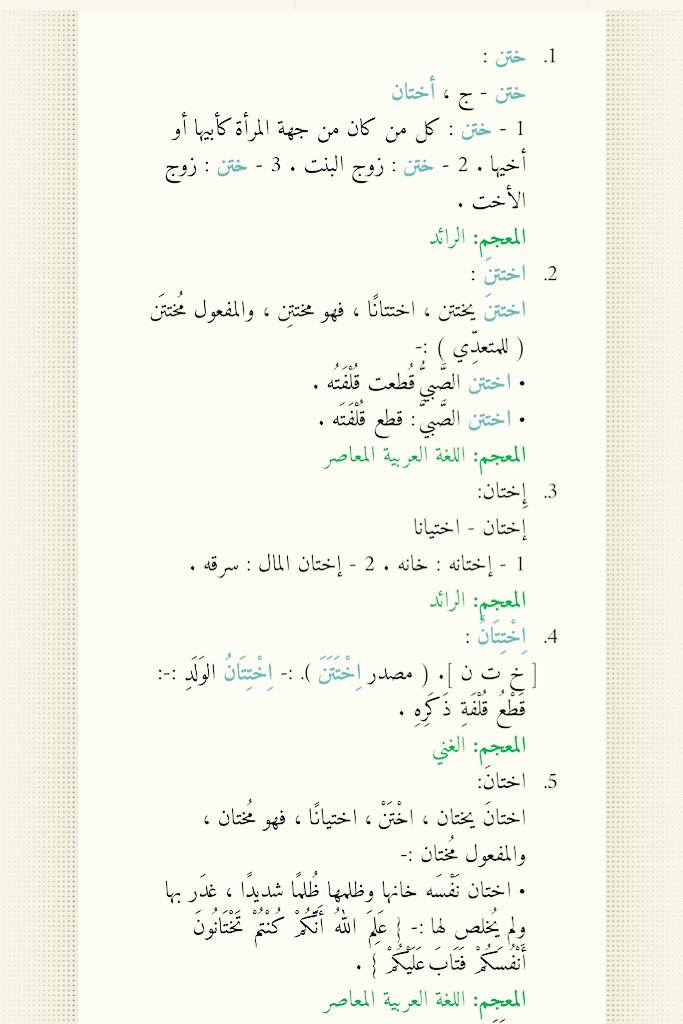 1. ختن :
ختن - ج ، أختان
1 - ختن : كل من كان من جهة المرأة كأبيها أو
أخيها . 2 - ختن : زوج البنت . 3 - ختن : زوج
الأخت .
المعجم: الرائد
2. اختتنَ :
اختتنَ يختتن ، اختتانًا ، فهو مختتِن ، والمفعول مُختتَن
( للمتعدِّي ) :-
• اختتن الصَّبيُّ قُطعت قُلْفَتُه .
• اختتن الصَّبيَّ: قطع قُلْفَتَه .
المعجم: اللغة العربية المعاصر
3. إِختان:
إختان - اختيانا
1 - إختانه : خانه . 2 - إختان المال : سرقه .
المعجم: الرائد
4. اِخْتِتَانٌ :
[ خ ت ن ]. ( مصدر اِخْتَتَنَ ). :- اِخْتِتَانُ الوَلَدِ :-:
قَطْعُ قُلْفَةِ ذَكَرِهِ .
المعجم: الغني
5. اختانَ:
اختانَ يختان ، اخْتَنْ ، اختيانًا ، فهو مُختان ،
والمفعول مُختان :-
• اختان نَفْسَه خانها وظلمها ظُلمًا شديدًا ، غدَر بها
ولم يُخلص لها :- { عَلِمَ اللهُ أَنَّكُمْ كُنْتُمْ تَخْتَانُونَ
أَنْفُسَكُمْ فَتَابَ عَلَيْكُمْ } .
المعجم: اللغة العربية المعاصر